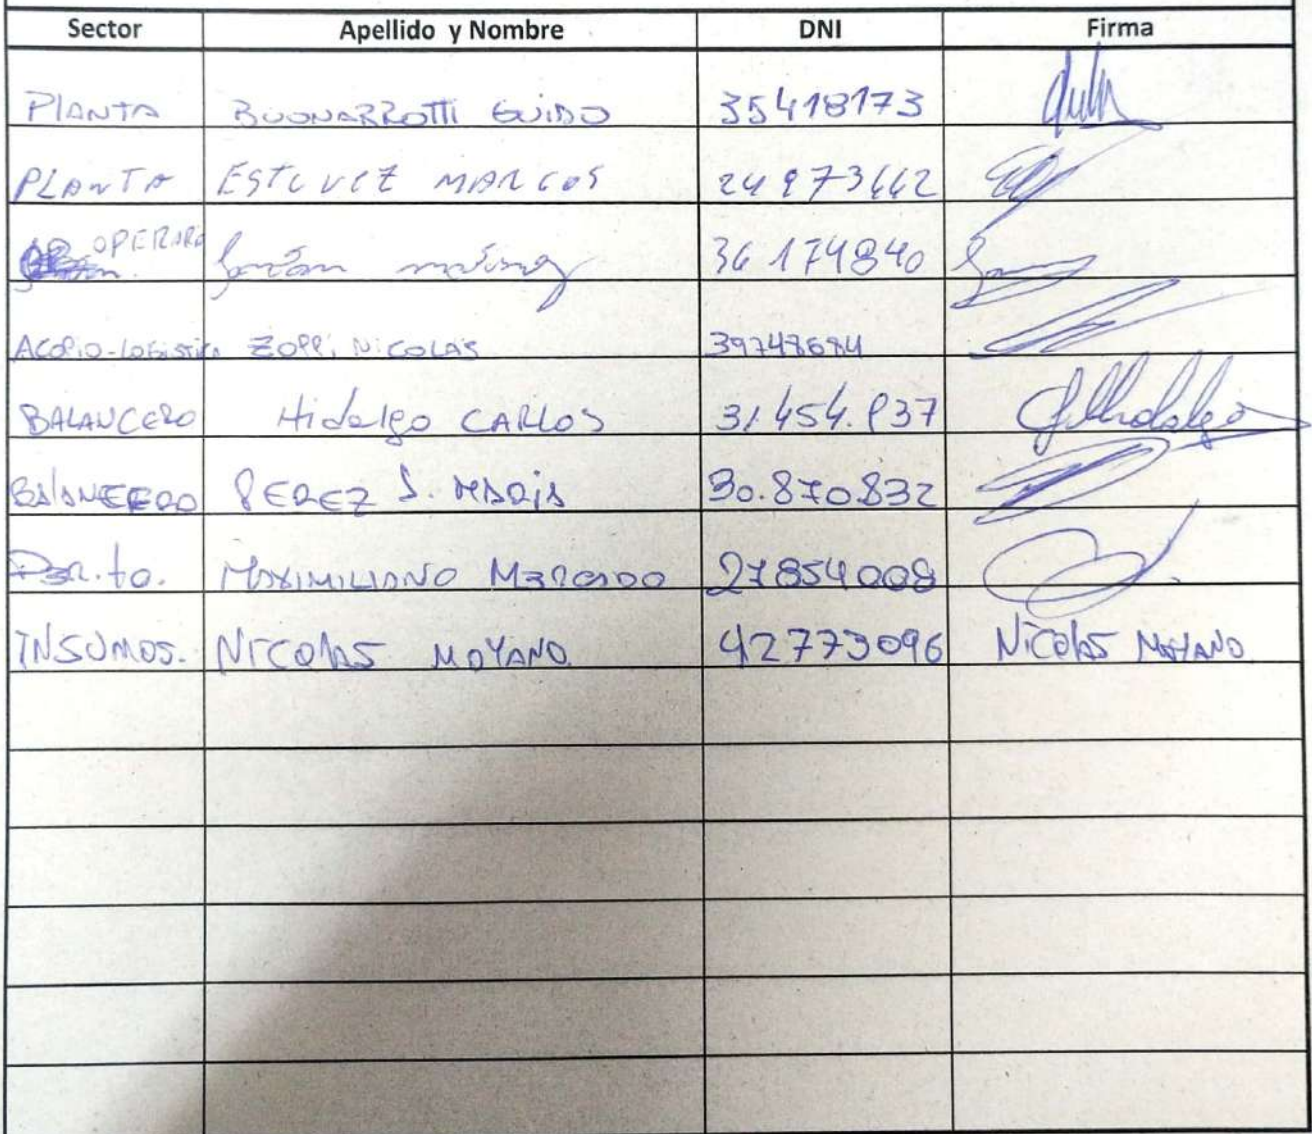 Sector Apellido y Nombre DNI Firma
PLANTA BUONARROTTI GUIDO 35418173
PLANTA ESTEVEZ MARCOS
OPERARIO 36 174840
ACOPIO-LOGISTICA ZOPPI NICOLAS
BALANCERO Hidalgo CARLOS
BALANCERO PEREZ J. MARIA 30.870.832
Perito. MAXIMILIANO MERCADO 27854008
INSUMOS. NICOLAS MOYANO 42773096 NICOLAS MOYANO